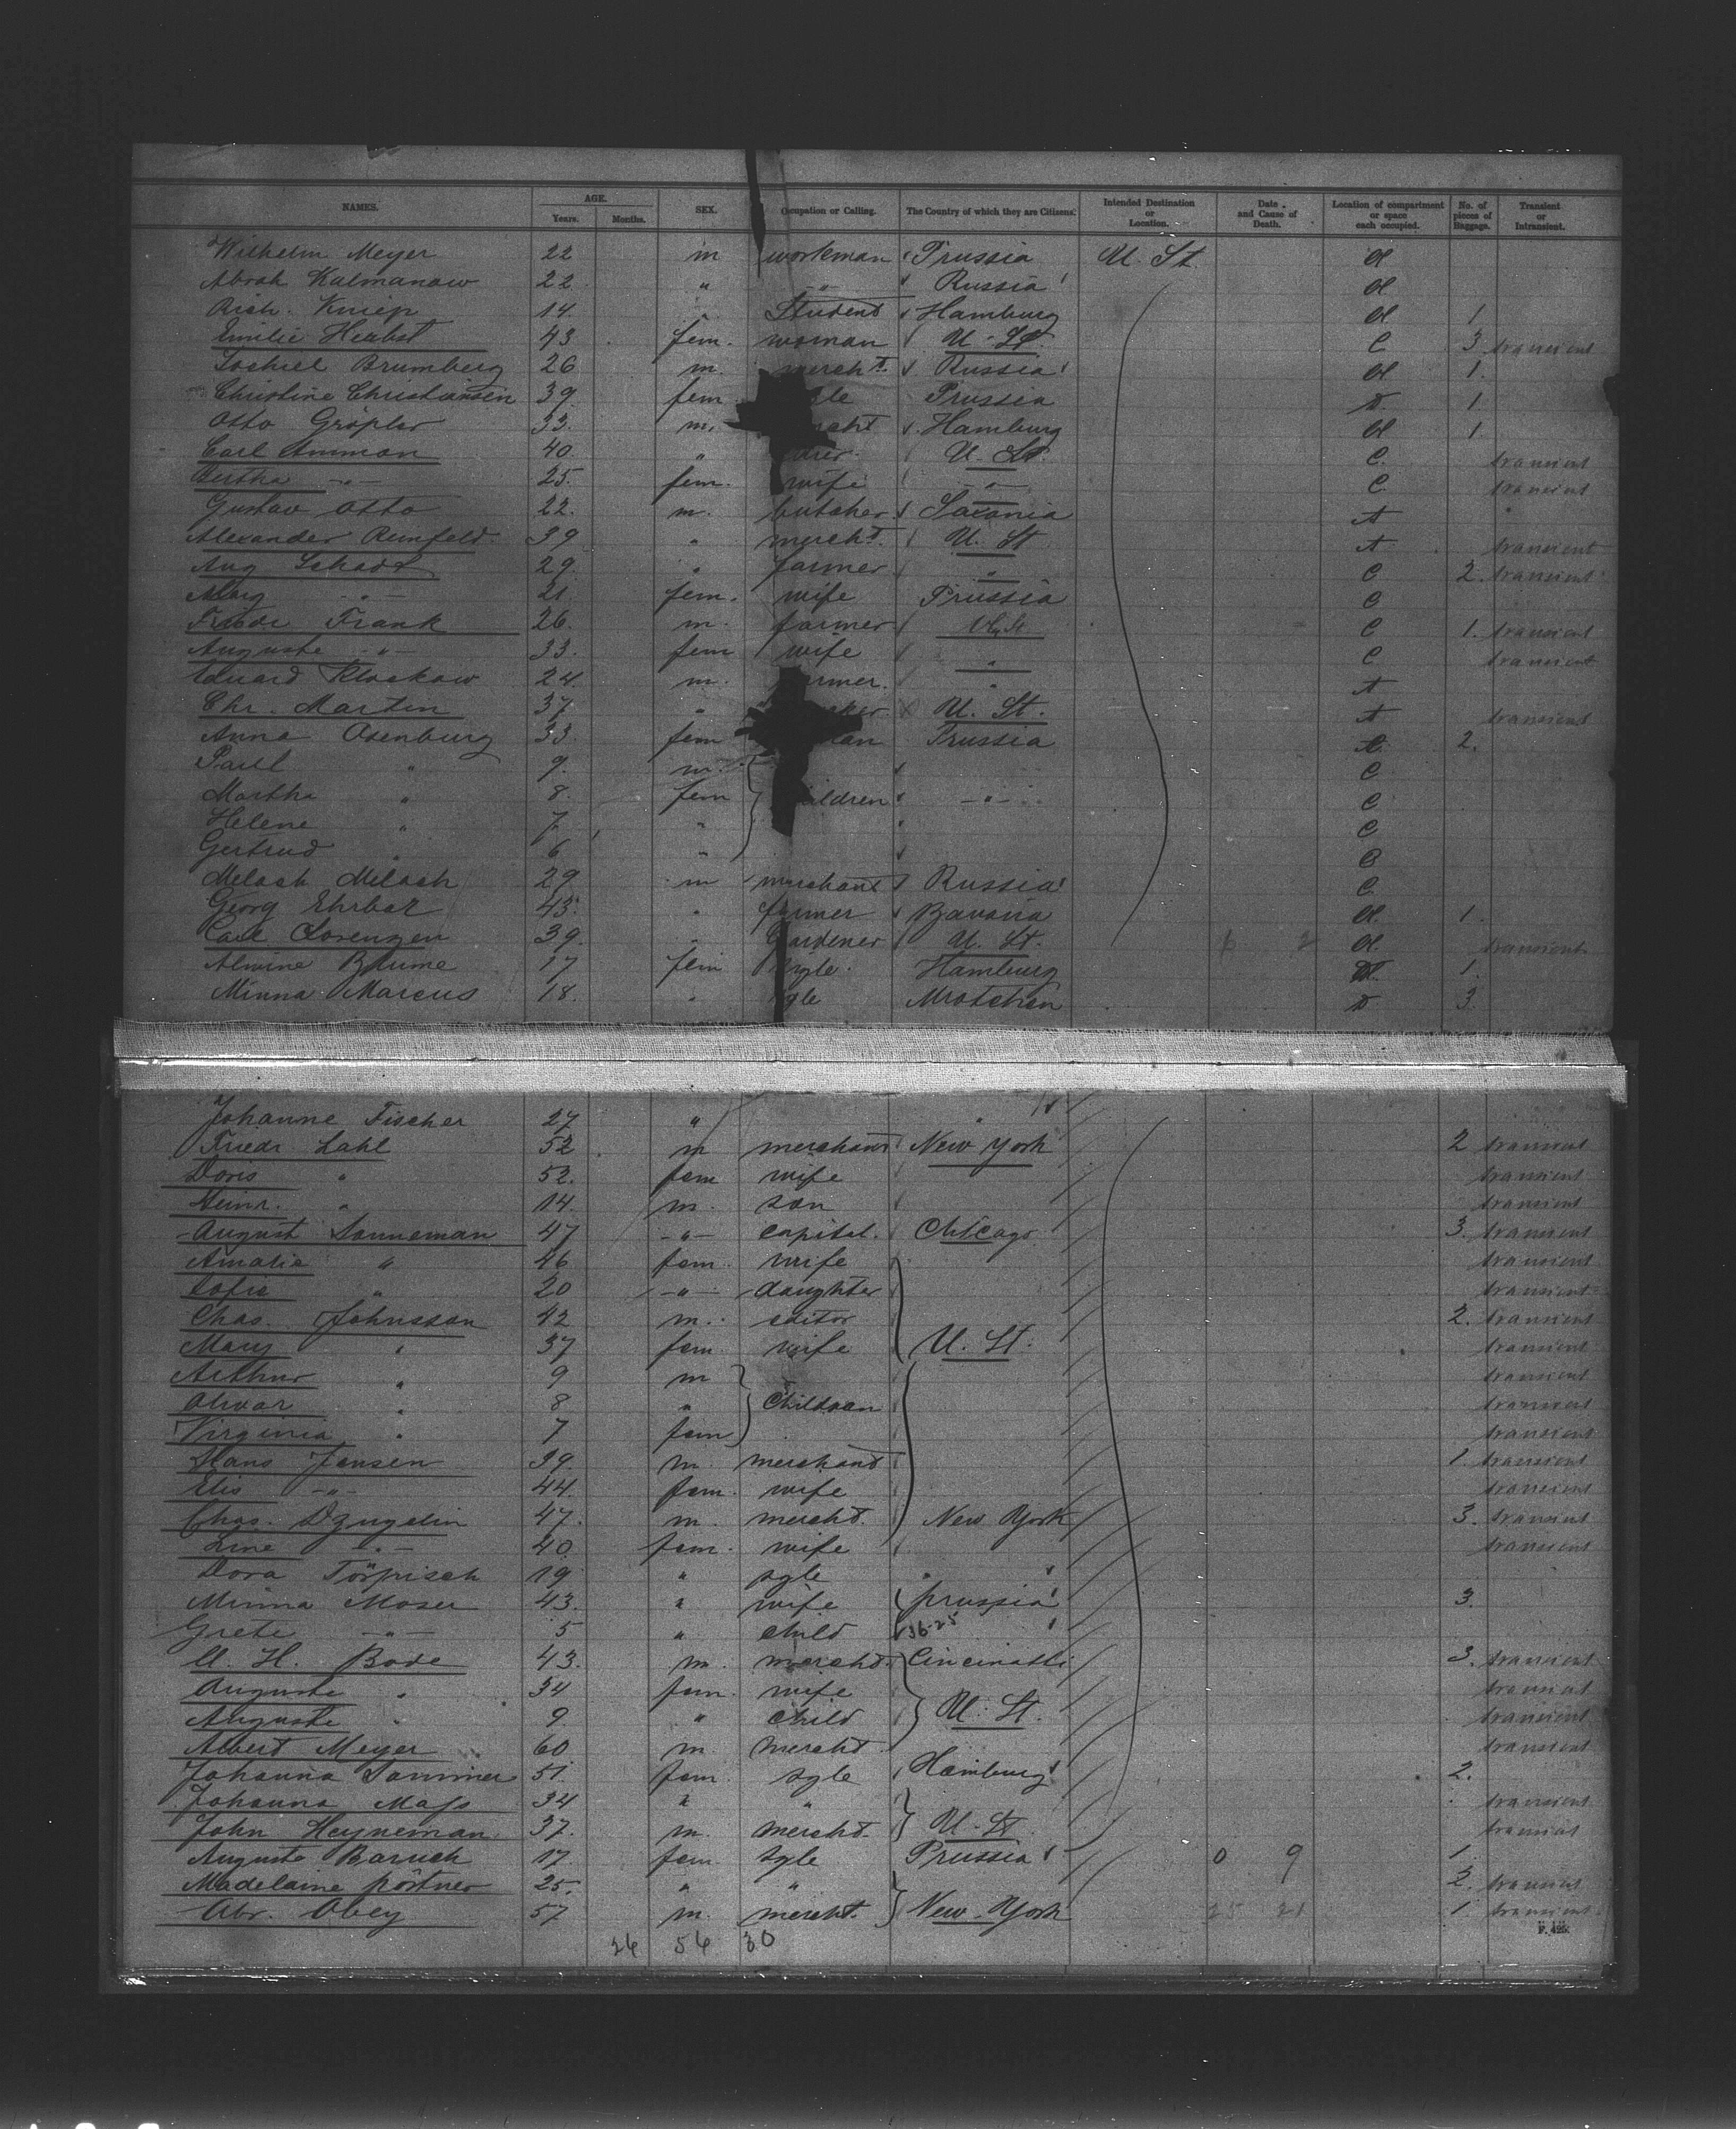 NAMES. AGE. Years. Months. SEX. Occupation or Calling. The Country of which they are Citizens. Intended Destination or Location. Date and Cause of Death. Location of compartment or space each occupied. No. of pieces of Baggage. Transient or Intransient.
Wilhelm Meyer 22 m workman Prussia U. St.
Abrah Kalmanow 22 " -"- Russia
Rich. Kniep 14 " Student Hamburg 1
Emilie Herbst 43 fem. woman U. St. C 3 transient
Brumberg 26 m. mercht. Russia 1.
Christine Christiansen 39 fem. Prussia 1
Otto Gröpler 33. m. Hamburg 1.
Carl Amman 40 " U. St. C. transient
Bertha -"- 25. fem. wife -"- C. transient
Gustav Otto 22. m. butcher Saxonia A
Alexander Remfeld 39 " mercht. U. St A transient
Aug Schadt 29 " farmer " C 2. transient
Mary -"- 21 fem. wife Prussia C
Friedr Frank 26. m. farmer U. St. C 1. transient
Auguste -"- 33. fem wife " C transient
Eduard Klockow 24 m. " A
Chr. Martin 37 " U. St. A transient
Anna Osenburg 33. fem Prussia 2.
Paul " 9. m. C
Martha " 8. fem children -"- C
Helene " 7 " C
Gertrud " 6 "
Melach Melach 29 m merchant Russia C.
Georg Ehrbar 43. " farmer Bavaria 1.
Carl Lorenzen 39. " Gardener U. St. transient
Alwine Blume 17 fem sgle. Hamburg 1.
Minna Marcus 18. " sgle Mrotchen 3.
Johanne Fischer 27 " "
Friedr Lahl 52 m merchant New York 2 transient
Doris " 52. fem wife transient
Heinr. " 14. m. son transient
August Sonneman 47 -"- capital. Chicago 3. transient
Amalie " 46 fem. wife transient
Sofie " 20 -"- daughter transient
Chas. Johnsson 42 m. editor 2. transient
Mary " 37 fem. wife U. St. transient
Arthur " 9 m transient
Oliver " 8 " Children transient
Virginia " 7 fem transient
Hans Jansen 39. m. merchant 1. transient
Elis -"- 44. fem. wife transient
Chas. 47. m. mercht. New York 3. transient
Line -"- 40. fem. wife transient
Dora Törpisch 19 " sgle " "
Minna Moser 43. " wife prussia 3.
Grete -"- 5 " child 36-25
H. Bode 43. m. mercht. Cincinatti 3. transient
Auguste " 34 fem. wife U. St. transient
Auguste " 9. " child transient
Albert Meyer 60 m. mercht. transient
Johanna Sommer 51. fem. sgle Hamburg 2.
Johanna Mass 34 " " transient
John Heyneman 37. m. mercht. U. St. transient
Auguste Baruch 17. fem. sgle Prussia 0 9 1.
Madelaine Pörtner 25. " " 2. transient
Abr. Obey 57 m. mercht. New York 25 21 1 transient
26 56 30